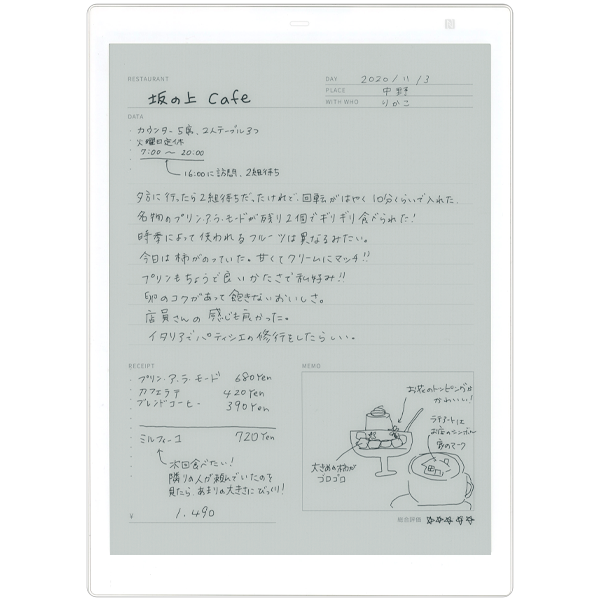 RESTAURANT
坂の上 Cafe
DAY 2020/11/3
PLACE 中野
WITH WHO りかこ
DATA
・カウンター5席、2人テーブル3つ
・火曜日定休
・7:00〜20:00
16:00に訪問、2組待ち
夕方に行ったら2組待ちだったけれど、回転がはやく10分くらいで入れた。
名物のプリン・アラ・モードが残り2個でギリギリ食べられた!
時季によって使われるフルーツは異なるみたい。
今日は柿がのっていた。甘くてクリームにマッチ!!
プリンもちょうど良いかたさで私好み!!
卵のコクがあって飽きないおいしさ。
店員さんの感じも良かった。
イタリアでパティシエの修行をしたらしい。
RECEIPT
・プリン・ア・ラ・モード 680Yen
・カフェラテ 420Yen
・ブレンドコーヒー 390Yen
ミルフィーユ 720Yen
次回食べたい!
隣りの人が頼んでいたのを
見たら、あまりの大きさにびっくり!
¥ 1,490
MEMO
お花のトッピングは
かわいい!
ラテアートは
お店のシンボル
家のマーク
大きめの柿が
ゴロゴロ
総合評価 ☆☆☆☆☆